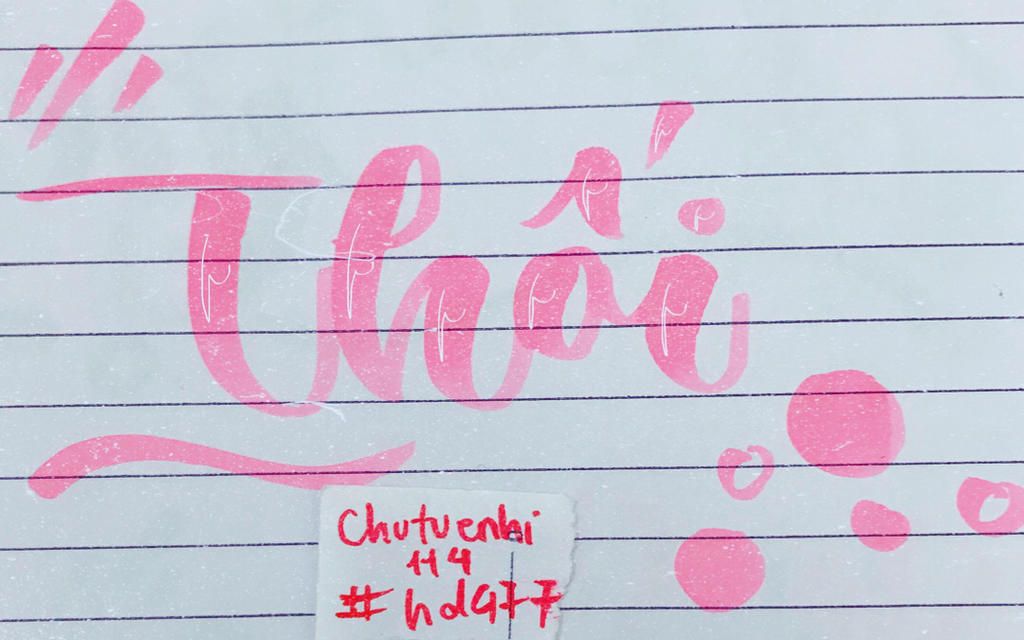 Thối
Chutuenhi
114
#hd977